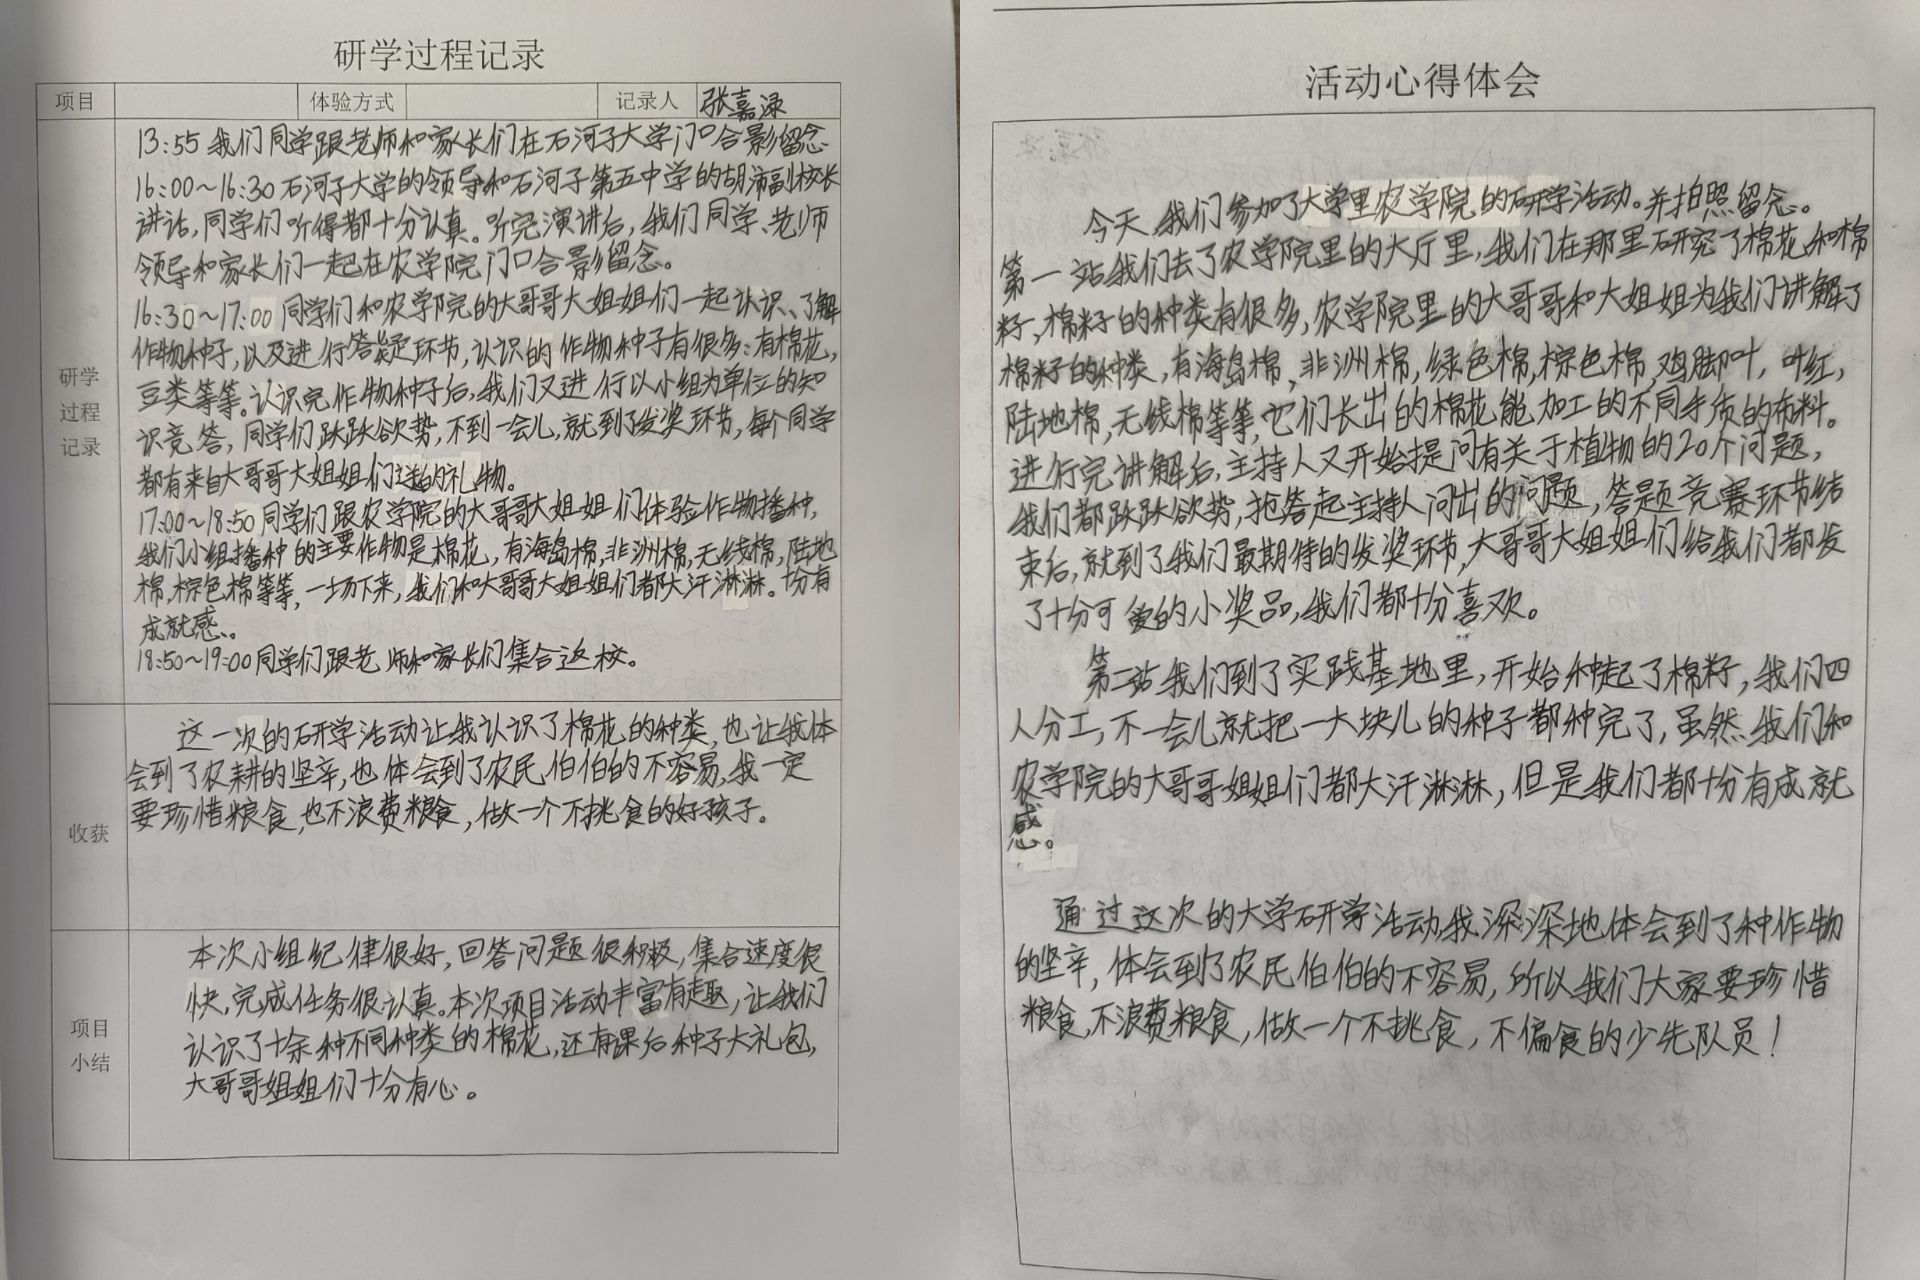 研学过程记录
项目 体验方式 记录人 张嘉渌
研学过程记录
13:55 我们同学跟老师和家长们在石河子大学门口合影留念
16:00~16:30 石河子大学的领导和石河子第五中学的胡沛副校长
讲话,同学们听得都十分认真。听完演讲后,我们同学、老师
领导和家长们一起在农学院门口合影留念。
16:30~17:00 同学们和农学院的大哥哥大姐姐们一起认识、了解
作物种子,以及进行答疑环节,认识的作物种子有很多:有棉花,
豆类等等。认识完作物种子后,我们又进行以小组为单位的知
识竞答,同学们跃跃欲势,不到一会儿,就到了发奖环节,每个同学
都有来自大哥哥大姐姐们送的礼物。
17:00~18:50 同学们跟农学院的大哥哥大姐姐们体验作物播种,
我们小组播种的主要作物是棉花,有海岛棉,非洲棉,无线棉,陆地
棉,棕色棉等等,一场下来,我们和大哥哥大姐姐们都大汗淋淋。十分有
成就感。
18:50~19:00 同学们跟老师和家长们集合返校。
收获
这一次的研学活动让我认识了棉花的种类,也让我体
会到了农耕的坚辛,也体会到了农民伯伯的不容易,我一定
要珍惜粮食,也不浪费粮食,做一个不挑食的好孩子。
项目小结
本次小组纪律很好,回答问题很积极,集合速度很
快,完成任务很认真。本次项目活动丰富有趣,让我们
认识了十余种不同种类的棉花,还有课后种子大礼包,
大哥哥姐姐们十分有心。
活动心得体会
今天,我们参加了大学里农学院的研学活动。并拍照留念。
第一站我们去了农学院里的大厅里,我们在那里研究了棉花和棉
籽,棉籽的种类有很多,农学院里的大哥哥和大姐姐为我们讲解了
棉籽的种类,有海岛棉,非洲棉,绿色棉,棕色棉,鸡脚叶,叶红,
陆地棉,无线棉等等,它们长出的棉花能加工的不同手质的布料。
进行完讲解后,主持人又开始提问有关于植物的20个问题,
我们都跃跃欲势,抢答起主持人问出的问题,答题竞赛环节结
束后,就到了我们最期待的发奖环节,大哥哥大姐姐们给我们都发
了十分可爱的小奖品,我们都十分喜欢。
第二站我们到了实践基地里,开始种起了棉籽,我们四
人分工,不一会儿就把一大块儿的种子都种完了,虽然我们和
农学院的大哥哥姐姐们都大汗淋淋,但是我们都十分有成就
感。
通过这次的大学研学活动,我深深地体会到了种作物
的坚辛,体会到了农民伯伯的不容易,所以我们大家要珍惜
粮食,不浪费粮食,做一个不挑食,不偏食的少先队员!